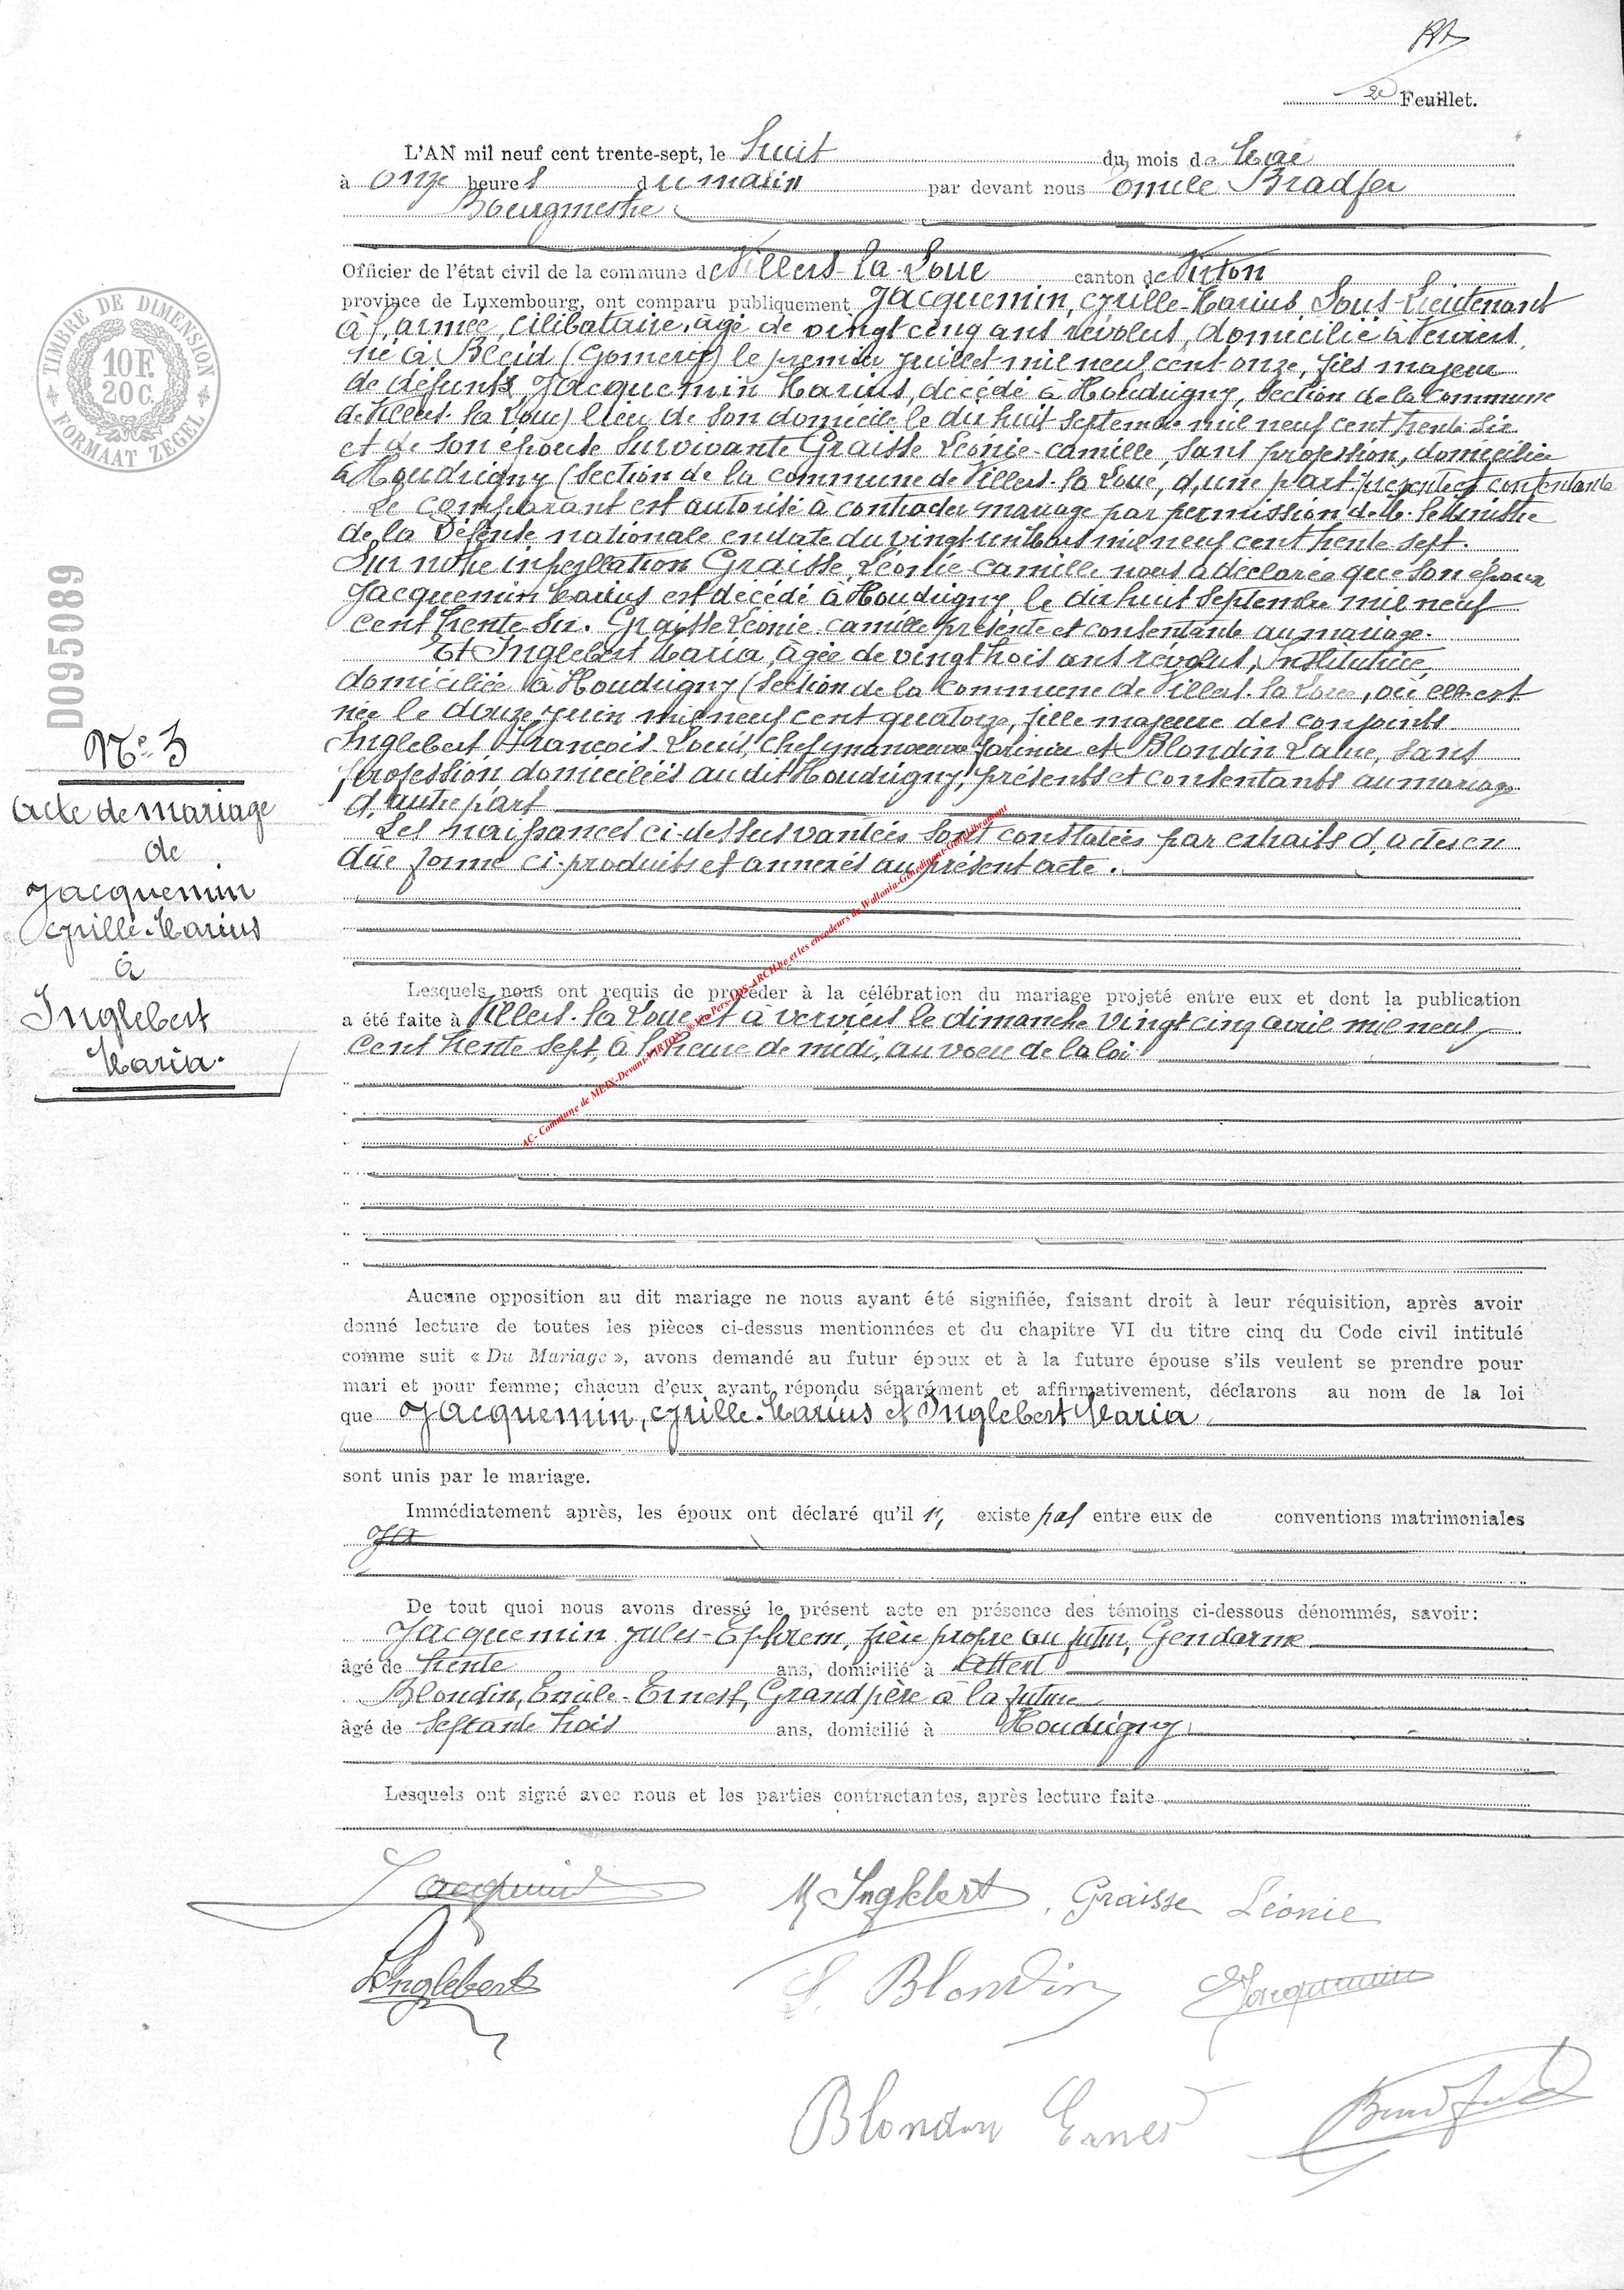 2e Feuillet.
L'AN mil neuf cent trente-sept, le huit du mois de Mai
à onze heures du matin par devant nous Bradfer
Bourgmestre
Officier de l'état civil de la commune de Villers-la-Loue canton de Virton
province de Luxembourg, ont comparu publiquement Jacquemin, Cyrille-Marius, Sous-Lieutenant
à l'armée, célibataire, âgé de vingt cinq ans révolus, domicilié à Verviers,
né à Bleid (Gomery) le premier juillet mil neuf cent onze, fils majeur
de défunt Jacquemin Marius, décédé à Houdrigny, section de la Commune
de Villers-la-Loue) lieu de son domicile le dix huit Septembre mil neuf cent trente six
et de son épouse survivante Graisse Léonie-Camille, sans profession, domiciliée
à Houdrigny (section de la commune de Villers-la-Loue, d'une part présente et consentante
Le comparant est autorisé à contracter mariage par permission de M. le Ministre
de la Défense nationale en date du vingt un Mars mil neuf cent trente sept.
Sur notre interpellation Graisse, Léonie Camille nous a déclarée que son époux
Jacquemin Marius est décédé à Houdrigny, le dix huit Septembre mil neuf
cent trente six. Graisse Léonie Camille présente et consentante au mariage.
Et Inglebert Maria, âgée de vingt trois ans révolus, Institutrice,
domiciliée à Houdrigny (section de la commune de Villers-la-Loue, où elle est
née le douze juin mil neuf cent quatorze, fille majeure des conjoints
Inglebert François-Louis, chef et Blondin, sans
profession domiciliés au dit Houdrigny, présents et consentants au mariage
d'autre part
Les naissances ci-dessus vantées sont constatées par extraits d'actes en
due forme ci-produits et annexés au présent acte.
TIMBRE DE DIMENSION
10 F.
20 C.
FORMAAT ZEGEL
D095089
No 3
Acte de mariage
de
Jacquemin
Cyrille-Marius
à
Inglebert
Maria.
Lesquels nous ont requis de procéder à la célébration du mariage projeté entre eux et dont la publication
a été faite à Villers-la-Loue et à Verviers le dimanche vingt cinq avril mil neuf
cent trente sept, à l'heure de midi, au voeu de la loi
AC- Commune de MEIX-Devant-VIRTON
Aucune opposition au dit mariage ne nous ayant été signifiée, faisant droit à leur réquisition, après avoir
donné lecture de toutes les pièces ci-dessus mentionnées et du chapitre VI du titre cinq du Code civil intitulé
comme suit « Du Mariage », avons demandé au futur époux et à la future épouse s'ils veulent se prendre pour
mari et pour femme; chacun d'eux ayant répondu séparément et affirmativement, déclarons au nom de la loi
que Jacquemin, Cyrille-Marius et Inglebert Maria
sont unis par le mariage.
Immédiatement après, les époux ont déclaré qu'il n' existe pas entre eux de conventions matrimoniales
De tout quoi nous avons dressé le présent acte en présence des témoins ci-dessous dénommés, savoir:
Jacquemin Jules-Ephrem, frère propre au futur, Gendarme
âgé de trente ans, domicilié à Attert
Blondin, Emile-Ernest, Grand père à la future
âgé de septante trois ans, domicilié à Houdrigny
Lesquels ont signé avec nous et les parties contractantes, après lecture faite
Jacquemin
M Inglebert Graisse Léonie
Inglebert
L. Blondin Jacquemin
Blondin Ernest Bradfer